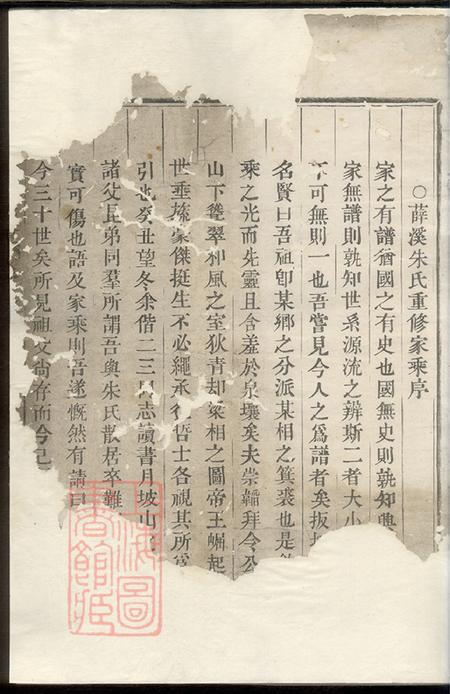 ○薛溪朱氏重修家乘序
家之有譜猶國之有史也國無史則孰知興
家無譜則孰知世系源流之辨斯二者大小
不可無則一也吾嘗見今人之爲譜者矣扳
名賢曰吾祖卽某鄉之分派某相之箕裘也是
乘之光而先靈且含羞於泉壤矣夫崇韜拜令公
山下聳翠和風之室狄青却梁相之圖帝王崛起
世垂豪傑挺生不必繩承行哲士各視其所爲
引也癸丑望冬余偕二三同志讀書月坡山
諸父昆弟同羣所謂吾與朱氏散居卒難
實可傷也語及家乘則吾遂慨然有請曰
今三十世矣所見祖父尙存而今已
上海圖書館藏